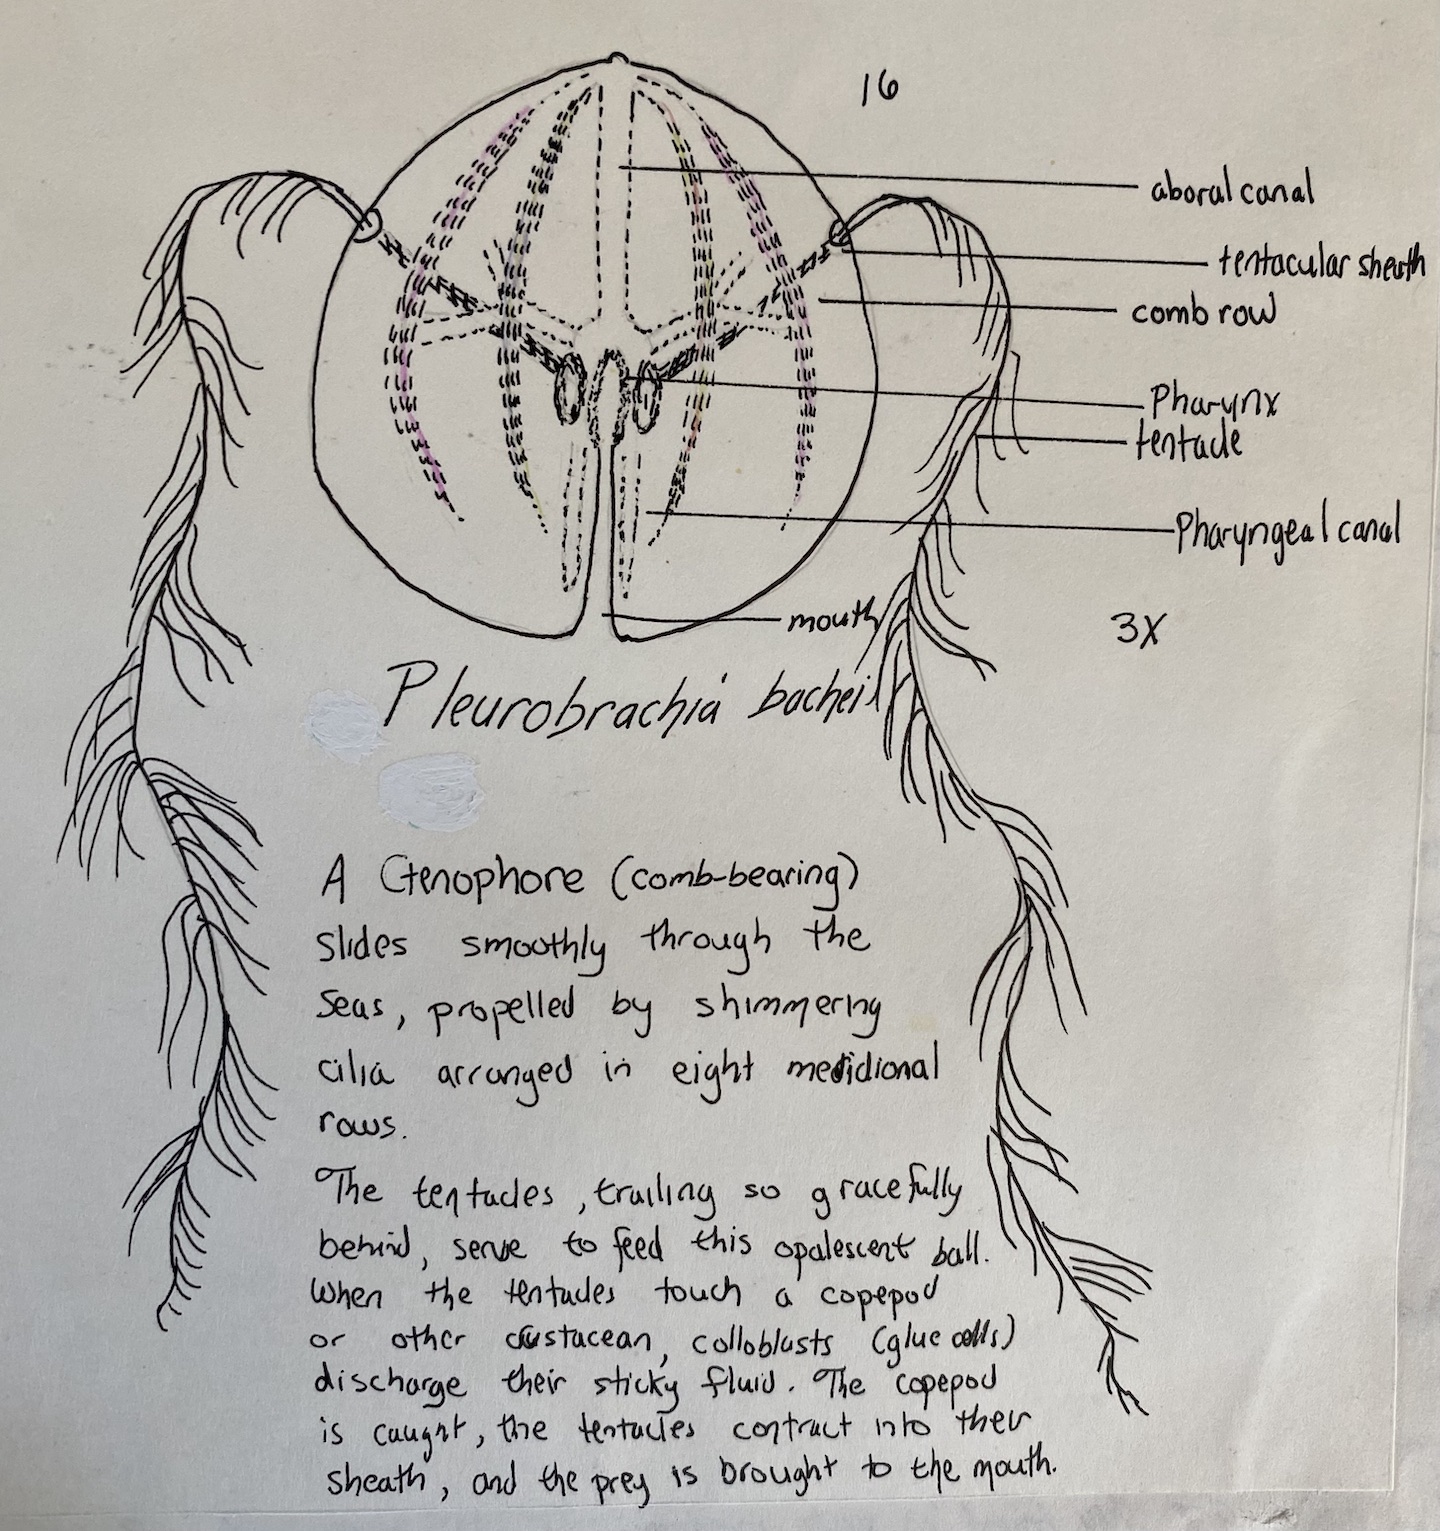 16
aboral canal
tentacular sheath
comb row
Pharynx
tentacle
Pharyngeal canal
mouth
3X
Pleurobrachia bachei
A Ctenophore (comb-bearing)
slides smoothly through the
seas, propelled by shimmering
cilia arranged in eight meridional
rows.
The tentacles, trailing so gracefully
behind, serve to feed this opalescent ball.
When the tentacles touch a copepod
or other crustacean, colloblasts (glue cells)
discharge their sticky fluid. The copepod
is caught, the tentacles contract into their
sheath, and the prey is brought to the mouth.